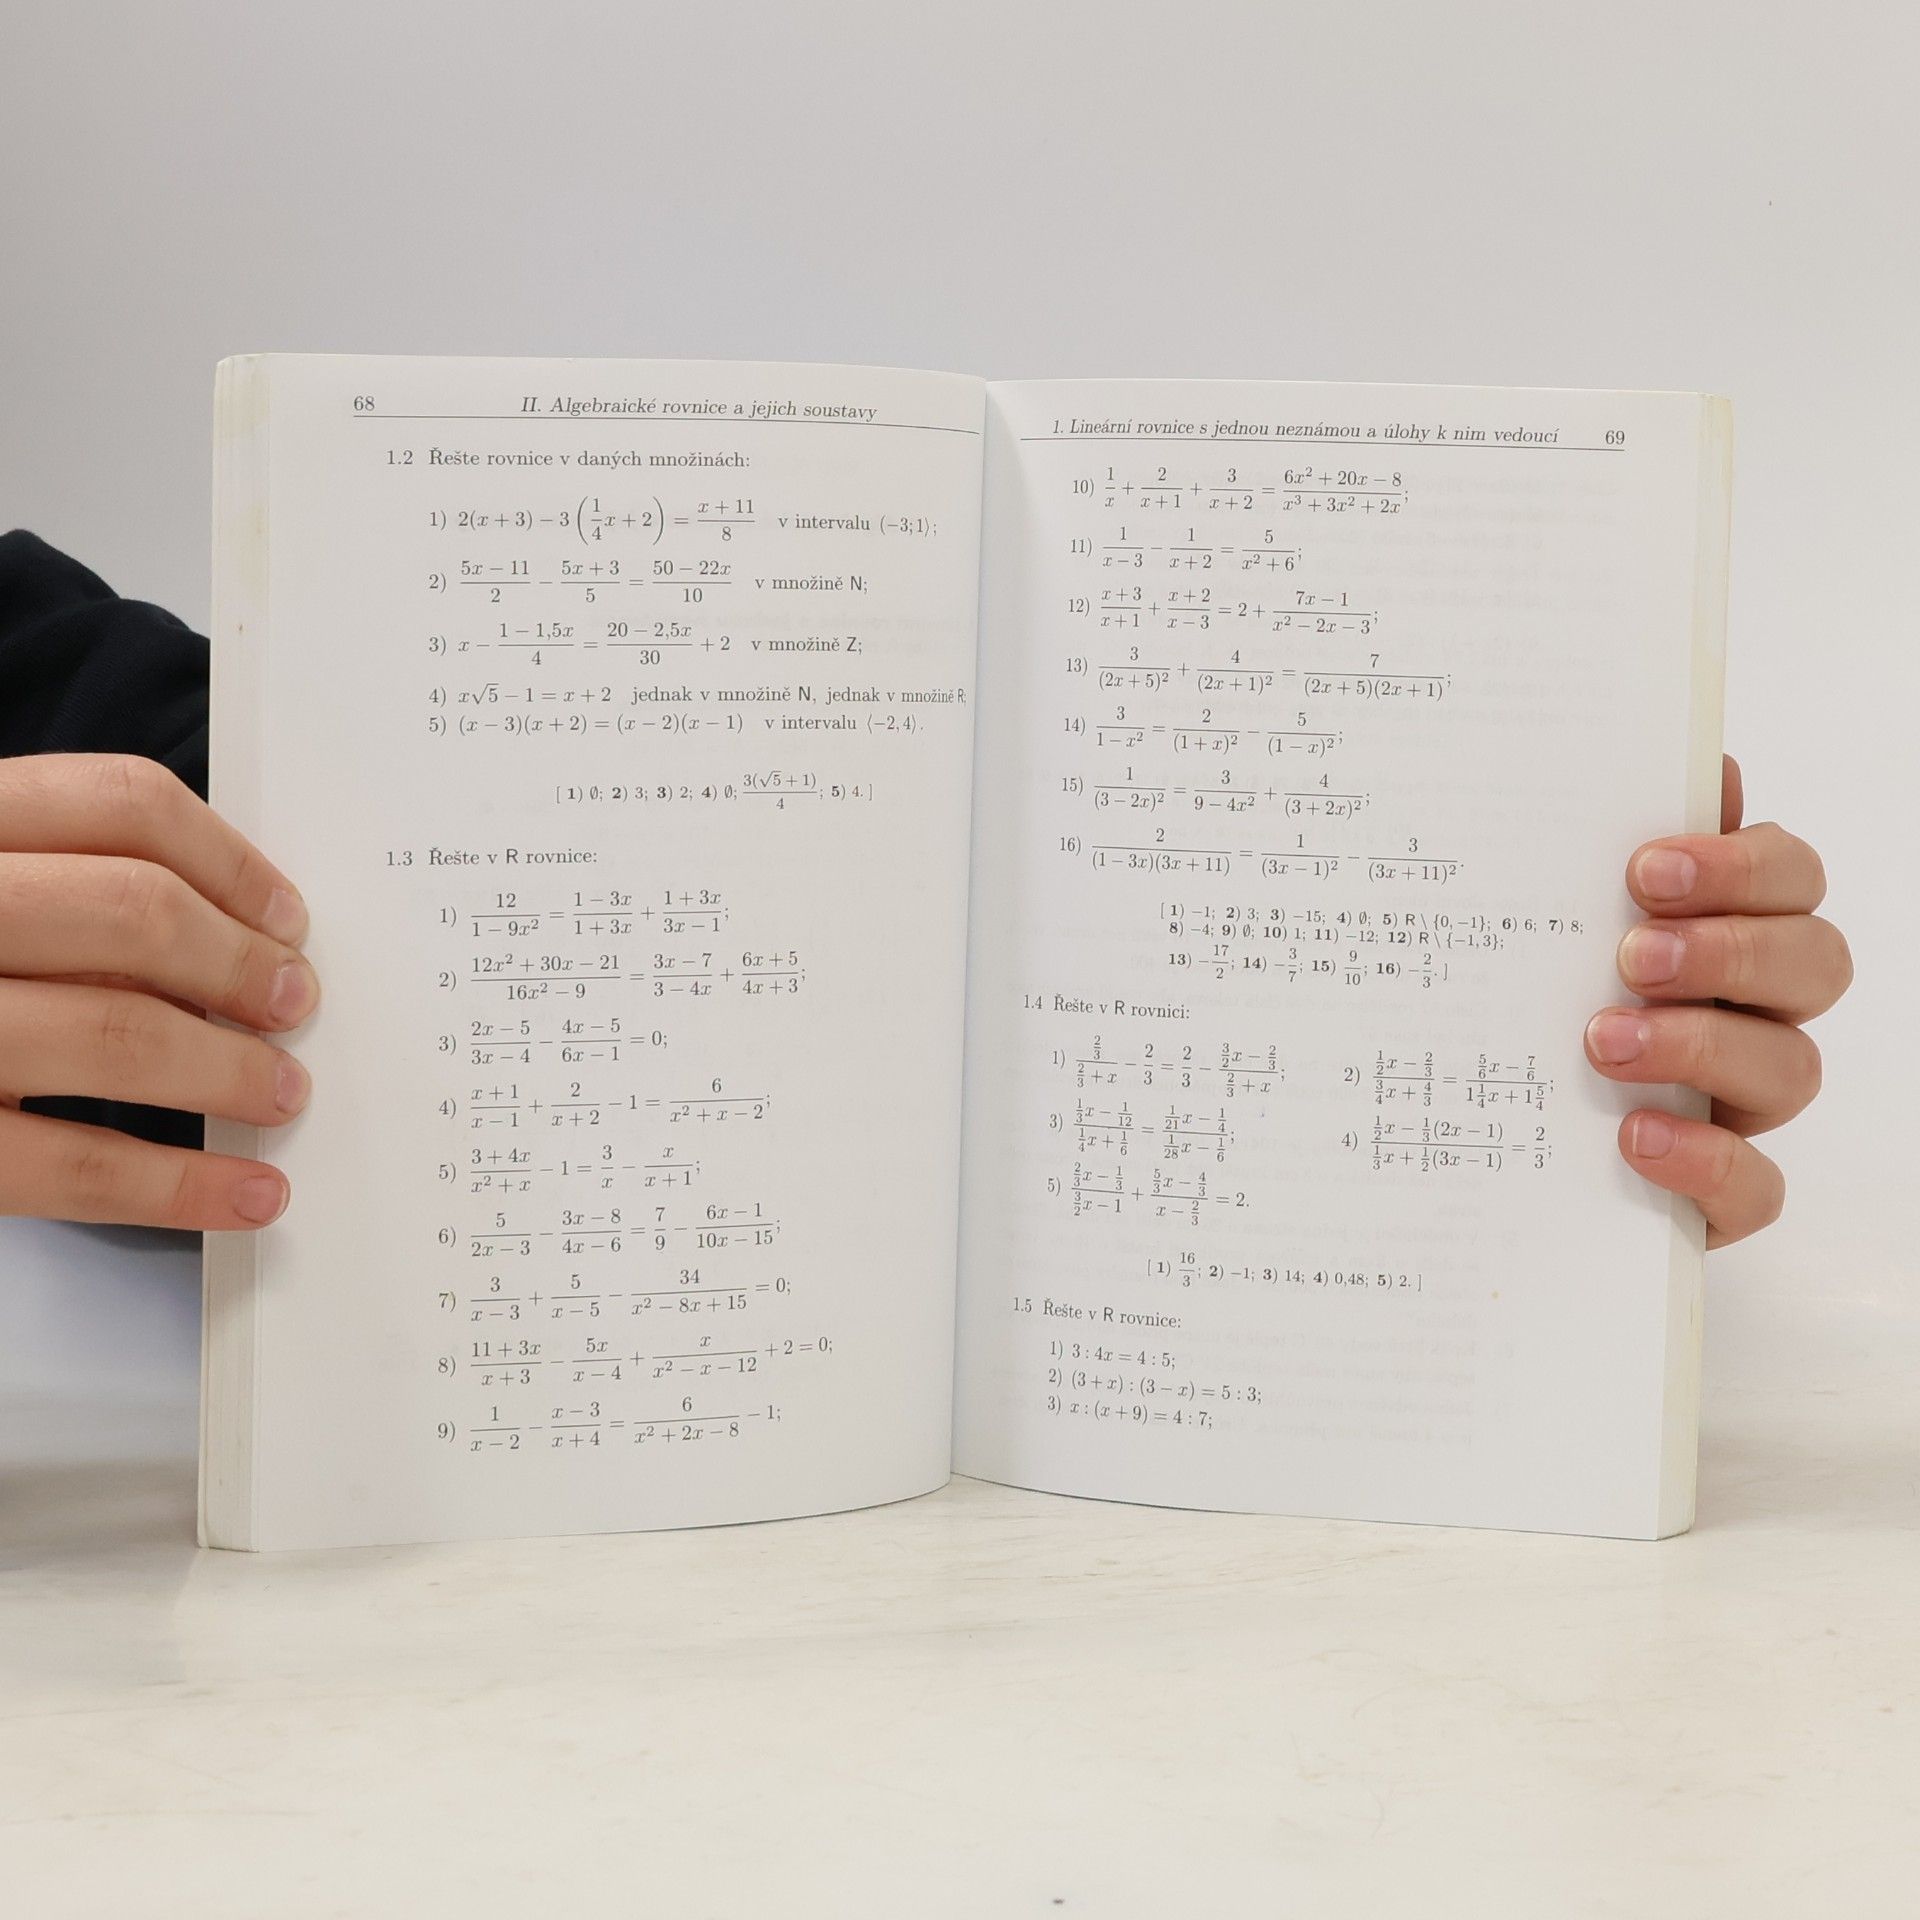 68 II. Algebraické rovnice a jejich soustavy
1.2 Řešte rovnice v daných množinách:
1) 2(x + 3) − 3 (1/4 x + 2) = (x + 11)/8 v intervalu (−3; 1⟩;
2) (5x − 11)/2 − (5x + 3)/5 = (50 − 22x)/10 v množině N;
3) x − (1 − 1,5x)/4 = (20 − 2,5x)/30 + 2 v množině Z;
4) x√5 − 1 = x + 2 jednak v množině N, jednak v množině R;
5) (x − 3)(x + 2) = (x − 2)(x − 1) v intervalu ⟨−2, 4⟩.
[ 1) ∅; 2) 3; 3) 2; 4) ∅; 3(√5 + 1)/4; 5) 4. ]
1.3 Řešte v R rovnice:
1) 12/(1 − 9x²) = (1 − 3x)/(1 + 3x) + (1 + 3x)/(3x − 1);
2) (12x² + 30x − 21)/(16x² − 9) = (3x − 7)/(3 − 4x) + (6x + 5)/(4x + 3);
3) (2x − 5)/(3x − 4) − (4x − 5)/(6x − 1) = 0;
4) (x + 1)/(x − 1) + 2/(x + 2) − 1 = 6/(x² + x − 2);
5) (3 + 4x)/(x² + x) − 1 = 3/x − x/(x + 1);
6) 5/(2x − 3) − (3x − 8)/(4x − 6) = 7/9 − (6x − 1)/(10x − 15);
7) 3/(x − 3) + 5/(x − 5) − 34/(x² − 8x + 15) = 0;
8) (11 + 3x)/(x + 3) − 5x/(x − 4) + x/(x² − x − 12) + 2 = 0;
9) 1/(x − 2) − (x − 3)/(x + 4) = 6/(x² + 2x − 8) − 1;
1. Lineární rovnice s jednou neznámou a úlohy k nim vedoucí 69
10) 1/x + 2/(x + 1) + 3/(x + 2) = (6x² + 20x − 8)/(x³ + 3x² + 2x);
11) 1/(x − 3) − 1/(x + 2) = 5/(x² + 6);
12) (x + 3)/(x + 1) + (x + 2)/(x − 3) = 2 + (7x − 1)/(x² − 2x − 3);
13) 3/(2x + 5)² + 4/(2x + 1)² = 7/((2x + 5)(2x + 1));
14) 3/(1 − x²) = 2/(1 + x)² − 5/(1 − x)²;
15) 1/(3 − 2x)² = 3/(9 − 4x²) + 4/(3 + 2x)²;
16) 2/((1 − 3x)(3x + 11)) = 1/(3x − 1)² − 3/(3x + 11)².
[ 1) −1; 2) 3; 3) −15; 4) ∅; 5) R \ {0, −1}; 6) 6; 7) 8;
8) −4; 9) ∅; 10) 1; 11) −12; 12) R \ {−1, 3};
13) −17/2; 14) −3/7; 15) 9/10; 16) −2/3. ]
1.4 Řešte v R rovnici:
1) (2/3)/(2/3 + x) − 2/3 = 2/3 − (3/2 x − 2/3)/(2/3 + x); 2) (1/2 x − 2/3)/(3/4 x + 4/3) = (5/6 x − 7/6)/(1 1/4 x + 1 5/4);
3) (1/3 x − 1/12)/(1/4 x + 1/6) = (1/21 x − 1/4)/(1/28 x − 1/6); 4) (1/2 x − 1/3 (2x − 1))/(1/3 x + 1/2 (3x − 1)) = 2/3;
5) (2/3 x − 1/3)/(3/2 x − 1) + (5/3 x − 4/3)/(x − 2/3) = 2.
[ 1) 16/3; 2) −1; 3) 14; 4) 0,48; 5) 2. ]
1.5 Řešte v R rovnice:
1) 3 : 4x = 4 : 5;
2) (3 + x) : (3 − x) = 5 : 3;
3) x : (x + 9) = 4 : 7;